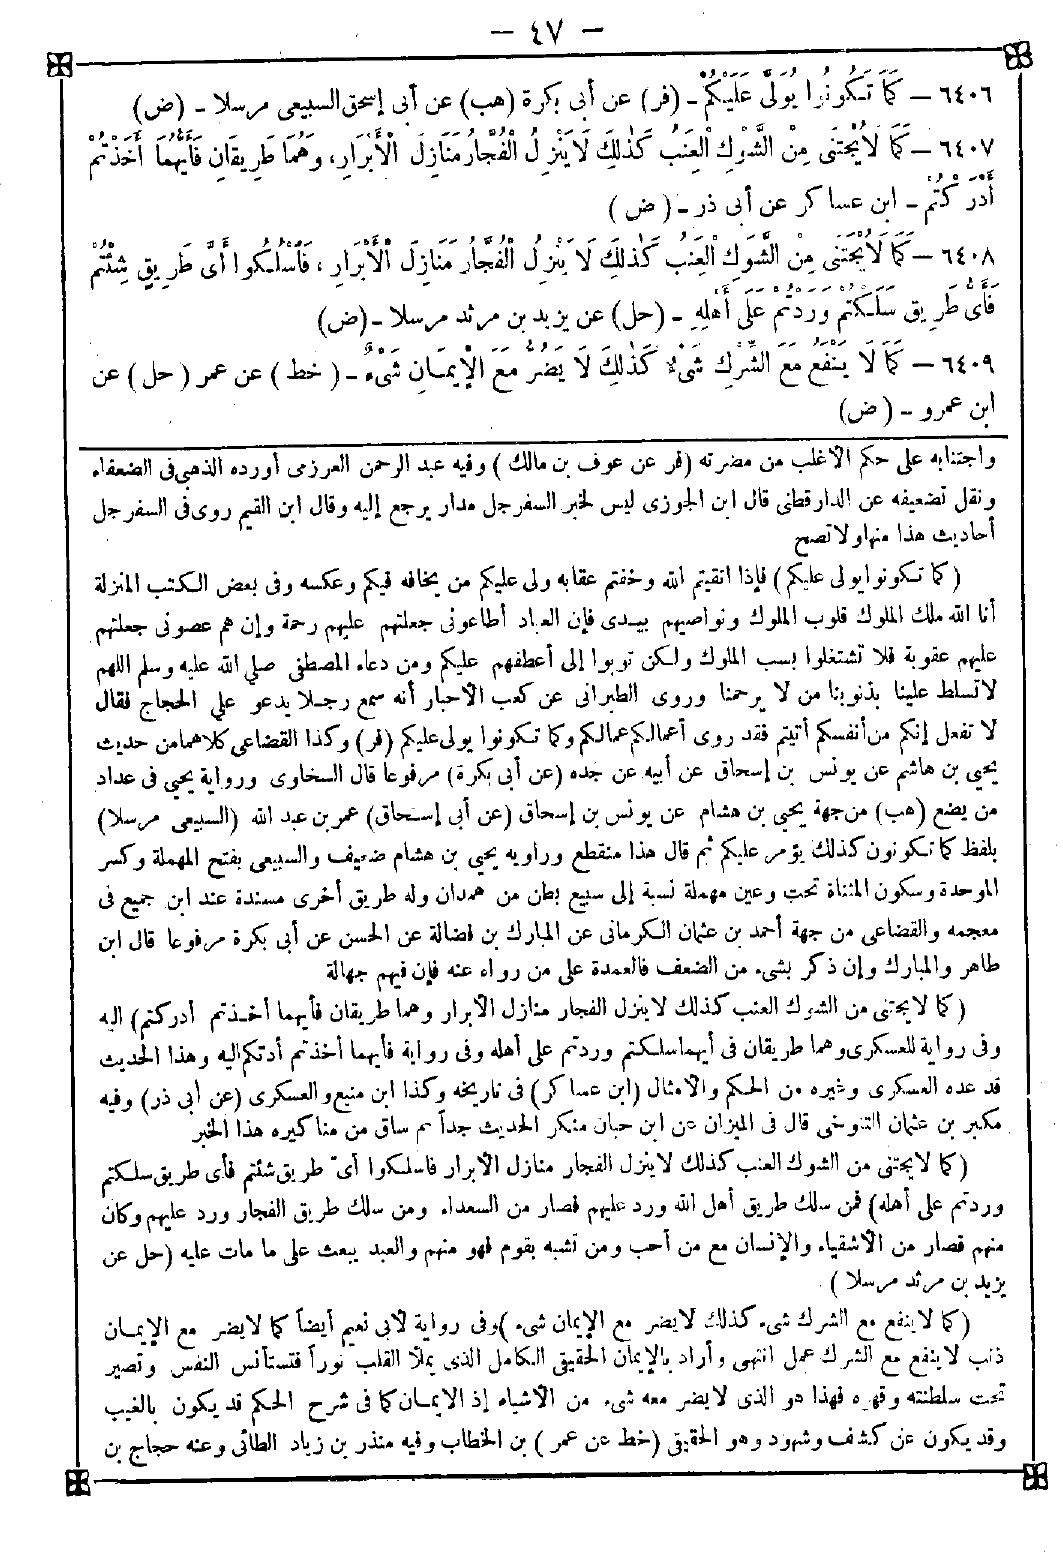 — ٤٧ —
٦٤٠٦ — كَمَا تَكُونُوا يُوَلَّى عَلَيْكُمْ - (فر) عن أبى بكرة (هب) عن أبى إسحق السبيعى مرسلا - (ض)
٦٤٠٧ — كَمَا لَا يُجْتَنَى مِنَ الشَّوْكِ الْعِنَبُ كَذٰلِكَ لَا يَنْزِلُ الْفُجَّارُ مَنَازِلَ الْأَبْرَارِ، وَهُمَا طَرِيقَانِ فَأَيَّهُمَا أَخَذْتُمْ
أَدْرَكْتُمْ - ابن عساكر عن أبى ذر - (ض)
٦٤٠٨ — كَمَا لَا يُجْتَنَى مِنَ الشَّوْكِ الْعِنَبُ كَذٰلِكَ لَا يَنْزِلُ الْفُجَّارُ مَنَازِلَ الْأَبْرَارِ، فَاسْلُكُوا أَىَّ طَرِيقٍ شِئْتُمْ
فَأَىُّ طَرِيقٍ سَلَكْتُمْ وَرَدْتُمْ عَلَى أَهْلِهِ - (حل) عن يزيد بن مرثد مرسلا - (ض)
٦٤٠٩ — كَمَا لَا يَنْفَعُ مَعَ الشِّرْكِ شَىْءٌ كَذٰلِكَ لَا يَضُرُّ مَعَ الْإِيمَانِ شَىْءٌ - (خط) عن عمر (حل) عن
ابن عمرو - (ض)
واجتنابه على حكم الأغلب من مضرته (فر عن عوف بن مالك) وفيه عبد الرحمن العرزمى أورده الذهبى فى الضعفاء
ونقل تضعيفه عن الدارقطنى قال ابن الجوزى ليس لخبر السفرجل مدار يرجع إليه وقال ابن القيم روى فى السفرجل
أحاديث هذا منها ولا تصح
(كما تكونوا يولى عليكم) فإذا اتقيتم الله وخفتم عقابه ولى عليكم من يخافه فيكم وعكسه وفى بعض الكتب المنزلة
أنا الله ملك الملوك قلوب الملوك ونواصيهم بيدى فإن العباد أطاعونى جعلتهم عليهم رحمة وإن هم عصونى جعلتهم
عليهم عقوبة فلا تشتغلوا بسب الملوك ولكن توبوا إلى أعطفهم عليكم ومن دعاء المصطفى صلى الله عليه وسلم اللهم
لا تسلط علينا بذنوبنا من لا يرحمنا وروى الطبرانى عن كعب الأحبار أنه سمع رجلا يدعو على الحجاج فقال
لا تفعل إنكم من أنفسكم أتيتم فقد روى أعمالكم عمالكم وكما تكونوا يولى عليكم (فر) وكذا القضاعى كلاهما من حديث
يحيى بن هاشم عن يونس بن إسحاق عن أبيه عن جده (عن أبى بكرة) مرفوعا قال السخاوى ورواية يحيى فى عداد
من يضع (هب) من جهة يحيى بن هشام عن يونس بن إسحاق (عن أبى إسحاق) عمر بن عبد الله (السبيعى مرسلا)
بلفظ كما تكونون كذلك يؤمر عليكم ثم قال هذا منقطع وراويه يحيى بن هشام ضعيف والسبيعى بفتح المهملة وكسر
الموحدة وسكون المثناة تحت وعين مهملة نسبة إلى سبيع بطن من همدان وله طريق أخرى مسندة عند ابن جميع فى
معجمه والقضاعى من جهة أحمد بن عثمان الكرمانى عن المبارك بن فضالة عن الحسن عن أبى بكرة مرفوعا قال ابن
طاهر والمبارك وإن ذكر بشىء من الضعف فالعمدة على من رواه عنه فإن فيهم جهالة
(كما لا يجتنى من الشوك العنب كذلك لا ينزل الفجار منازل الأبرار وهما طريقان فأيهما أخذتم أدركتم) إليه
وفى رواية للعسكرى وهما طريقان فى أيهما سلكتم وردتم على أهله وفى رواية فأيهما أخذتم أدتكم إليه وهذا الحديث
قد عده العسكرى وغيره من الحكم والأمثال (ابن عساكر) فى تاريخه وكذا ابن منيع والعسكرى (عن أبى ذر) وفيه
مكبر بن عثمان التنوخى قال فى الميزان عن ابن حبان منكر الحديث جداً ثم ساق من مناكيره هذا الخبر
(كما لا يجتنى من الشوك العنب كذلك لا ينزل الفجار منازل الأبرار فاسلكوا أىّ طريق شئتم فأى طريق سلكتم
وردتم على أهله) فمن سلك طريق أهل الله ورد عليهم فصار من السعداء ومن سلك طريق الفجار ورد عليهم وكان
منهم فصار من الأشقياء والإنسان مع من أحب ومن تشبه بقوم فهو منهم والعبد يبعث على ما مات عليه (حل عن
يزيد بن مرثد مرسلا)
(كما لا ينفع مع الشرك شىء كذلك لا يضر مع الإيمان شىء) وفى رواية لأبى نعيم أيضاً كما لا يضر مع الإيمان
ذنب لا ينفع مع الشرك عمل انتهى وأراد بالإيمان الحقيقى الكامل الذى يملأ القلب نوراً فتستأنس النفس وتصير
تحت سلطنته وقهره فهذا هو الذى لا يضر معه شىء من الأشياء إذ الإيمان كما فى شرح الحكم قد يكون بالغيب
وقد يكون عن كشف وشهود وهو الحقيقى (خط عن عمر) بن الخطاب وفيه منذر بن زياد الطائى وعنه حجاج بن